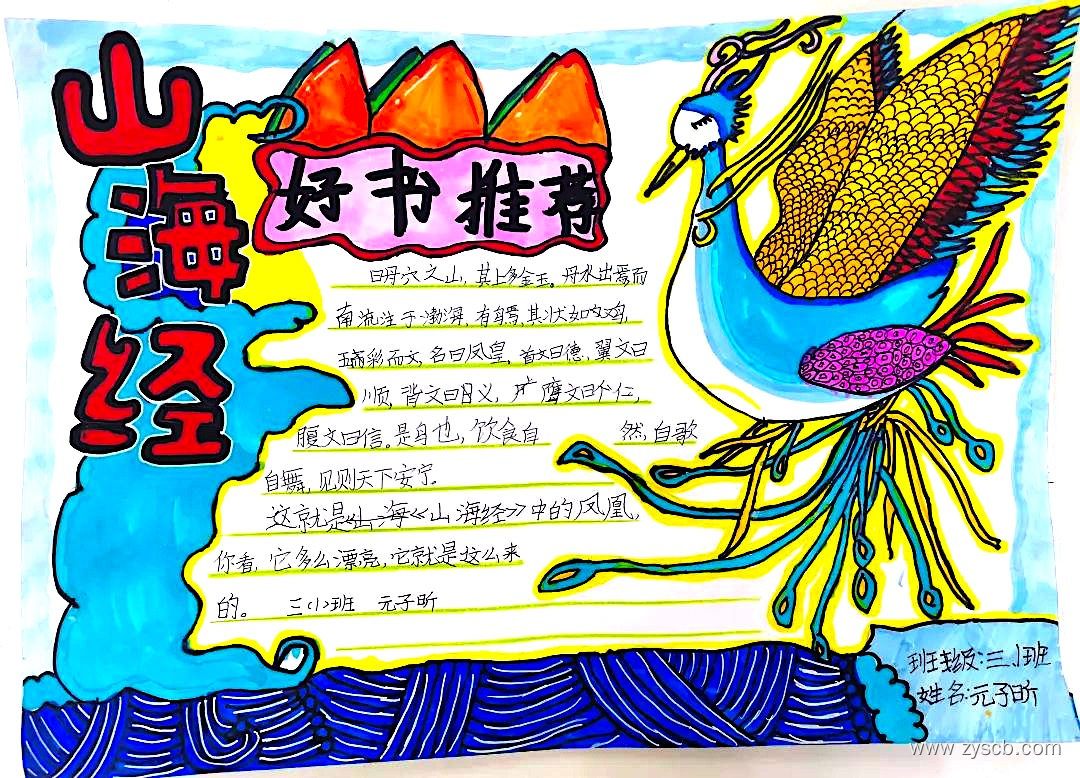 山海经
好书推荐
曰丹穴之山,其上多金玉。丹水出焉,而
南流注于渤海,有鸟焉,其状如鸡,
五彩而文,名曰凤皇,首文曰德,翼文曰
顺,背文曰义,膺文曰仁,
腹文曰信。是鸟也,饮食自 然,自歌
自舞,见则天下安宁。
这就是《山海《山海经》中的凤凰,
你看,它多么漂亮,它就是这么来
的。 三(1)班 元子昕
班级:三1班
姓名:元子昕
www.zyscb.com